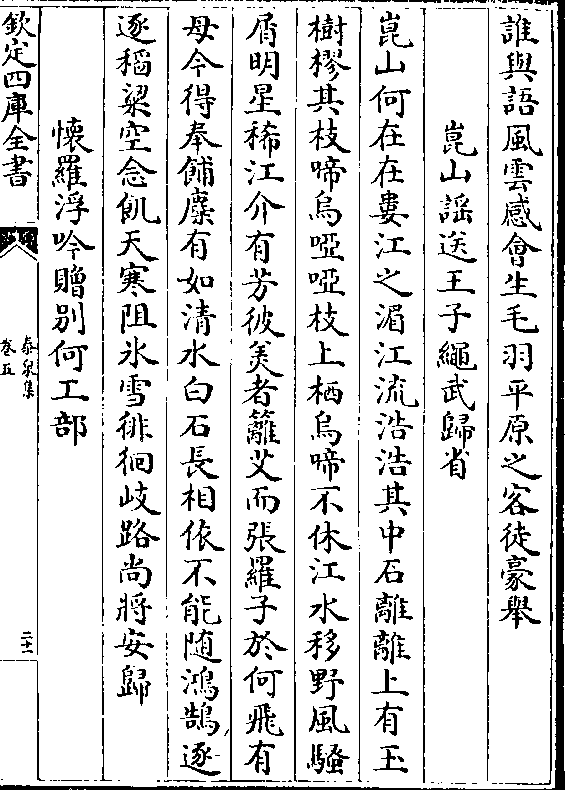 誰與語風雲感會生毛羽平原之客徒豪舉
崑山謠送王子繩武歸省
崑山何在在婁江之湄江流浩浩其中石離離上有玉
樹樛其枝啼烏啞啞枝上栖烏啼不休江水移野風騷
屑明星稀江介有芳彼美者蘺艾而張羅子於何飛有
母今得奉餔糜有如清水白石長相依不能随鴻鵠逐
逐稻粱空念飢天寒阻氷雪徘徊岐路尚將安歸
懷羅浮吟贈别何工部
欽定四庫全書
泰泉集
卷五
二十二